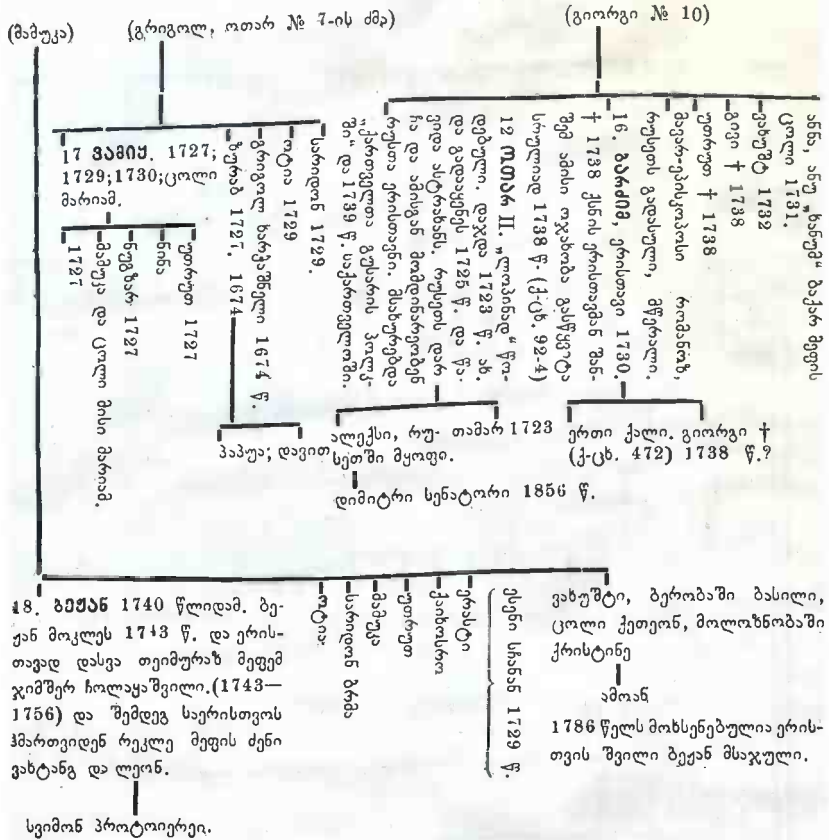 (მამუკა)
(გრიგოლ, ოთარ № 7-ის ძმა)
(გიორგი № 10)
17 ვამიყ. 1727;
1729;1730;ცოლი
მარიამ.
1727
მამუკა და ცოლი მისი მარიამ.
ნუგზარ 1727
ნინა
უთრუთ 1727
ზურაბ 1727. 1674
გრიგოლ ხარჭაშნელი 1674 წ.
ოტია 1729
სარიდონ 1729.
პაპუა; დავით
12 ოთარ II. „ლოპინად“ წო-
დებული. დაჯდა 1723 წ. ახ.
და გადააყენეს 1725 წ. და წა-
ვიდა ასტრახანს. რუსეთს დარ
ჩა და ამისგან მომდინარეობენ
რუსთა ერისთავნი. მსახურებდა
„ქართველთა გუსარის პოლკ-
ში“ და 1739 წ. საქართველოში.
ალექსი, რუ-
სეთში მყოფი.
თამარ 1723
დიმიტრი სენატორი 1856 წ.
16. ბარძიმ, ერისთავი 1730.
† 1738 ქსნის ერისთავმან შან-
შემ ამისი ოჯახობა გასწყვიტა
სრულიად 1738 წ. (ქ-ცხ. 92-4)
ერთი ქალი.
(ქ-ცხ. 472)
გიორგი †
1738 წ.?
მავარ-ეპისკოპოსი რომანოზ,
რუსეთს გადასული, მწერალი.
უთრუთ † 1738
გივი † 1738
ვახუშტ 1732
ანნა, ანუ „ხანუმ“ ბაქარ მეფის
ცოლი 1731.
18. ბეჟან 1740 წლიდამ. ბე-
ჟან მოკლეს 1743 წ. და ერის-
თავად დასვა თეიმურაზ მეფემ
ჯიმშერ ჩოლაყაშვილი.(1743—
1756) და შემდეგ საერისთვოს
ჰმართვიდენ რეკლე მეფის ძენი
ვახტანგ და ლეონ.
სვიმონ პროტოიერეი.
ოტია.
სარიდონ ბრმა
მამუკა
უთრუთ
ქაიხოსრო
ერასტი
ესენი სჩანან 1729 წ.
ვახუშტი, ბერობაში ბასილი,
ცოლი ქეთეონ, მოლოზნობაში
ქრისტინე
ამოან
1786 წელს მოხსენებულია ერის-
თვის შვილი ბეჟან მსაჯული.